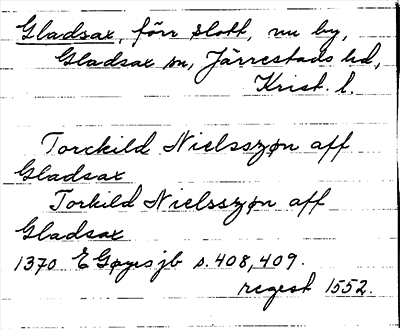 Gladsax, förr slott, nu by,
Gladsax sn, Järrestads hd,
Krist. l.
Torckild Nielsszøn aff
Gladsax
Torkild Nielsszøn aff
Gladsax
1370 EGøyesjb s. 408, 409.
regest 1552.